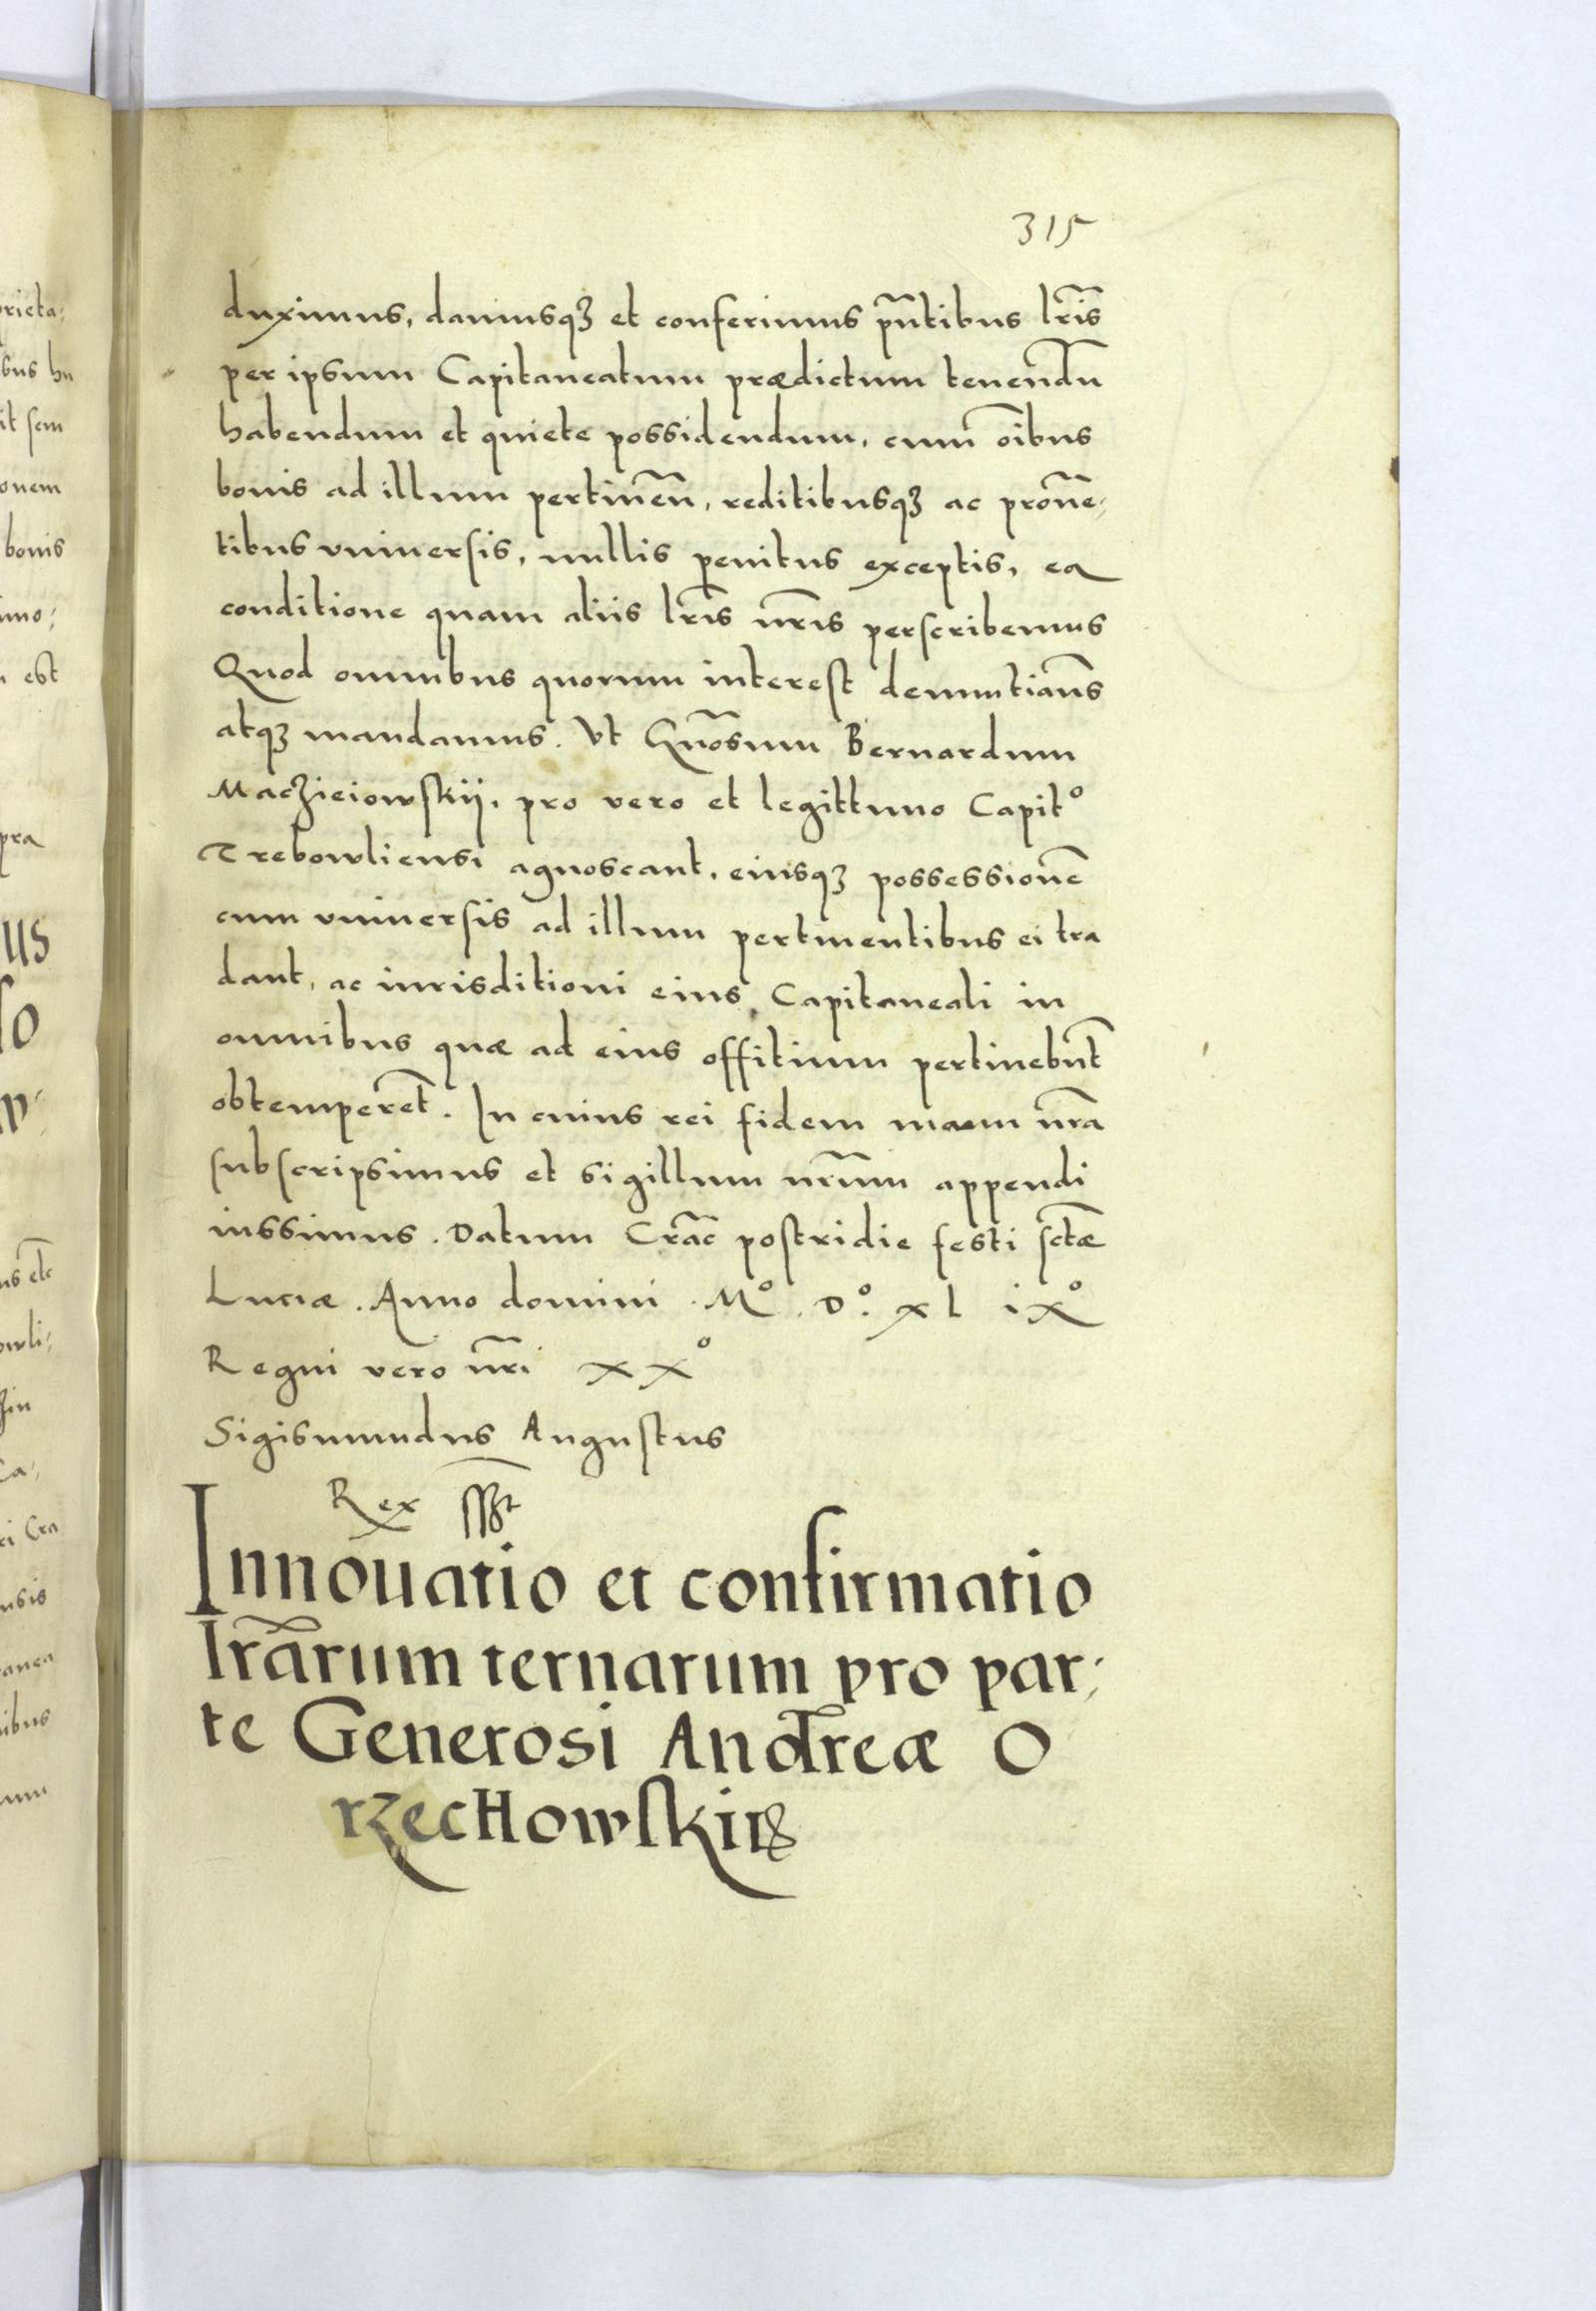 315
duximus, damusqꝫ et conferimus pñtibus lr̃is
per ipsum Capitaneatum prædictum tenend̃u
habendum et quiete possidendum, cum õibus
bonis ad illum pertineñ, reditibusqꝫ ac proue͂⸗
tibus vniuersis, nullis penitus exceptis, ea
conditione quam aliis lr̃is nr̃is perscribemus
Quod omnibus quorum interest denuntiam̃s
atqꝫ mandamus. Vt Gñosum Bernardum
Maczieiowskij, pro vero et legittimo Capitº
Trebowliensi agnoscant, eiusqꝫ possessione͂
cum vniuersis ad illum pertinentibus ei tra
dant, ac iurisditioni eius Capitaneali in
omnibus quæ ad eius offitium pertinebũt
obtemperẽt. In cuius rei fidem manu nr̃a
subscripsimus et sigillum nr̃um appendi
iussimus. Datum Crac̃ postridie festi sctæ̃
Luciæ. Anno domini. Mº. Dº. xl ixº
Regni vero nr̃i xxº
Sigismundus Augustus
Rex ss̃t
Innouatio et confirmatio
lr̃arum ternarum pro par⸗
te Generosi Andreæ O
rzechowskij
prieta⸗
bonis
est
pra
us
so
ei Cra
ibus